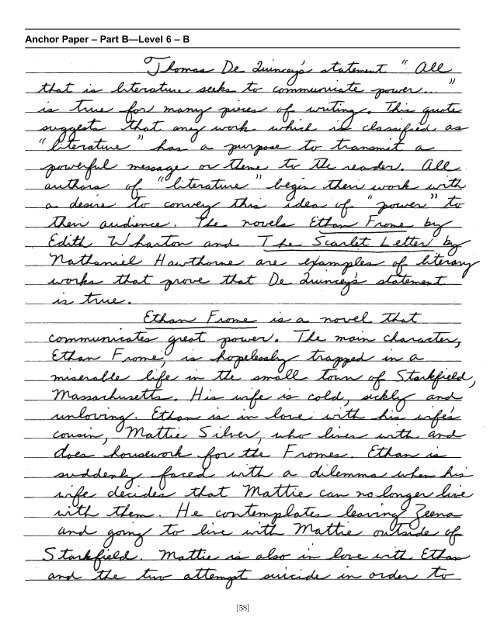 Anchor Paper – Part B—Level 6 – B
Thomas De Quincey's statement "All
that is literature seeks to communicate power..."
is true for many pieces of writing. This quote
suggests that any work which is classified as
"literature" has a purpose to transmit a
powerful message or theme to the reader. All
authors of "literature" begin their work with
a desire to convey this idea of "power" to
their audience. The novels Ethan Frome by
Edith Wharton and The Scarlet Letter by
Nathaniel Hawthorne are examples of literary
works that prove that De Quincey's statement
is true.
Ethan Frome is a novel that
communicates great power. The main character,
Ethan Frome, is hopelessly trapped in a
miserable life in the small town of Starkfield,
Massachusetts. His wife is cold, sickly and
unloving. Ethan is in love with his wife's
cousin, Mattie Silver, who lives with and
does housework for the Fromes. Ethan is
suddenly faced with a dilemma when his
wife decides that Mattie can no longer live
with them. He contemplates leaving Zeena
and going to live with Mattie outside of
Starkfield. Mattie is also in love with Ethan
and the two attempt suicide in order to
[58]